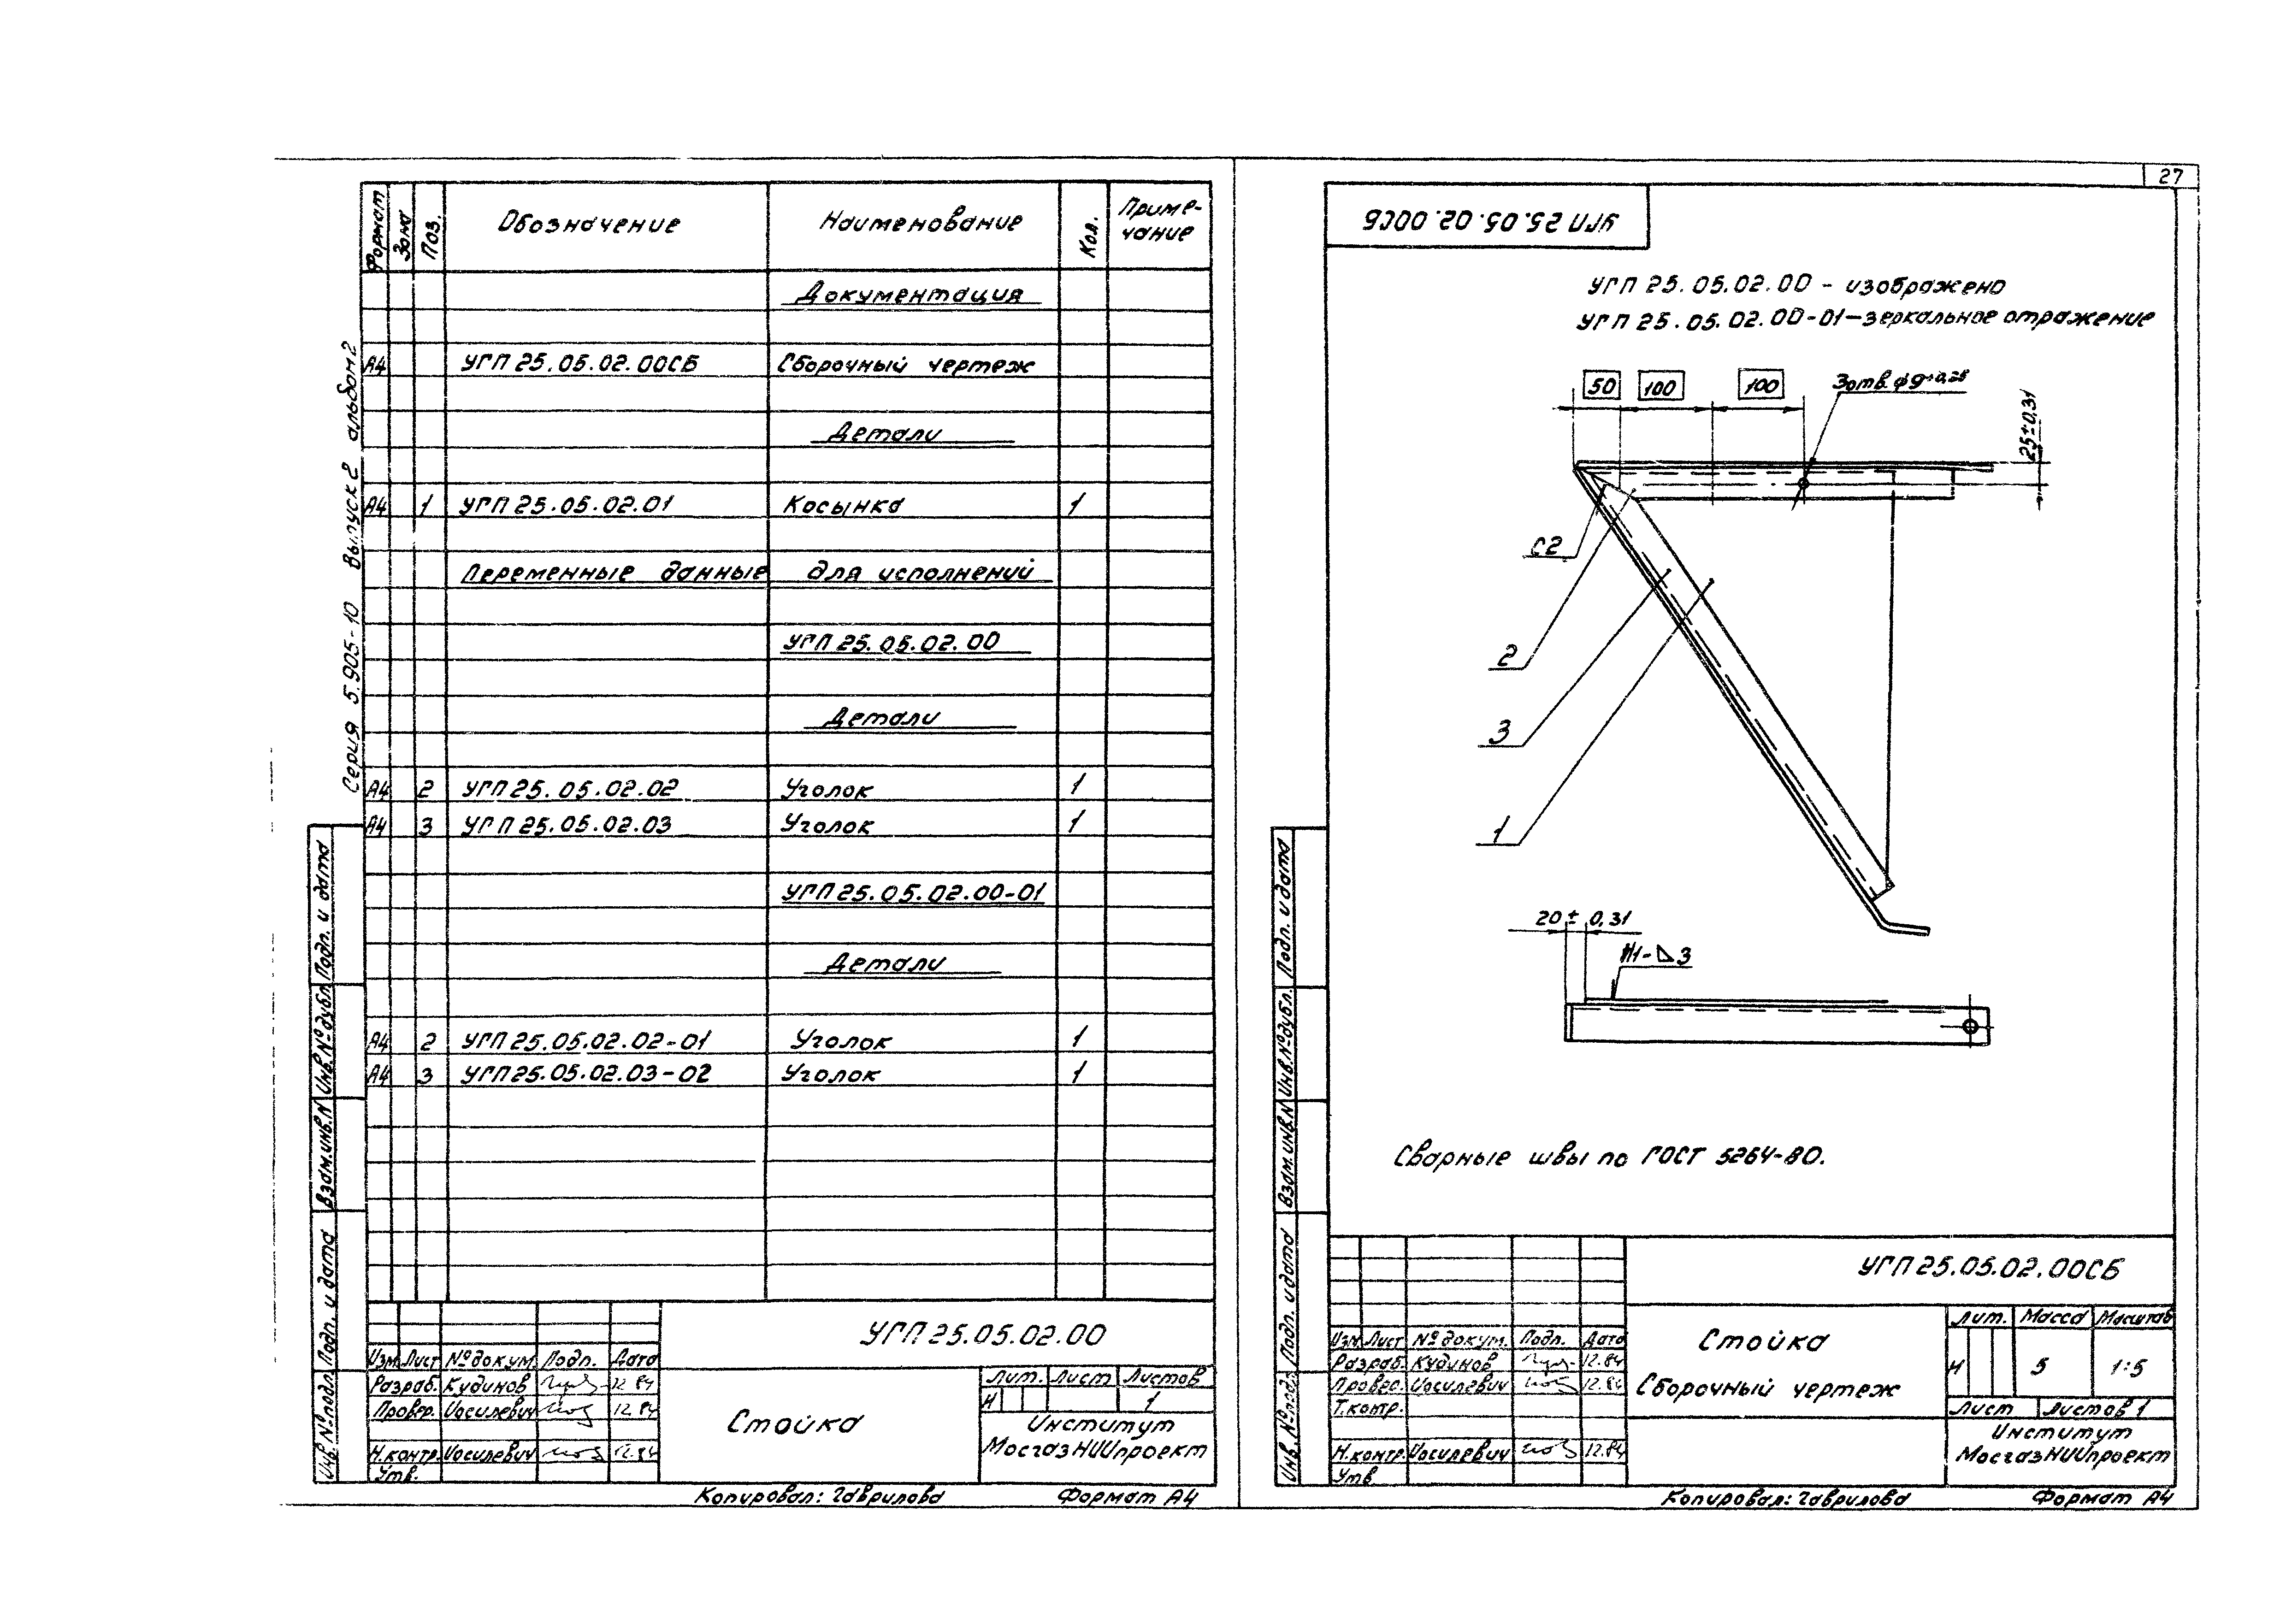 27
Серия 5.905-10 Выпуск 2 альбом 2
Формат Зона Поз. Обозначение Наименование Кол. Приме-
чание
Документация
А4 УГП 25.05.02.00СБ Сборочный чертеж
Детали
А4 1 УГП 25.05.02.01 Косынка 1
Переменные данные для исполнений
УГП 25.05.02.00
Детали
А4 2 УГП 25.05.02.02 Уголок 1
А4 3 УГП 25.05.02.03 Уголок 1
УГП 25.05.02.00-01
Детали
А4 2 УГП 25.05.02.02-01 Уголок 1
А4 3 УГП 25.05.02.03-02 Уголок 1
Подп. и дата
Инв.№дубл.
Взам.инв.N
Подп. и дата
Инв.№подл.
УГП 25.05.02.00
Изм. Лист №докум. Подп. Дата
Разраб. Кудинов 12.84
Провер. Иосилевич 12.84
Н.контр. Иосилевич 12.84
Утв.
Стойка
Лит. Лист Листов
И 1
Институт
МосгазНИИпроект
Копировал: Гаврилова Формат А4
УГП 25.05.02.00СБ
УГП 25.05.02.00 - изображено
УГП 25.05.02.00-01-зеркальное отражение
50 100 100 3отв. φ9+0,28
25±0,31
С2
2
3
1
20± 0,31
Н1-◺3
Сварные швы по ГОСТ 5264-80.
Подп. и дата
Инв.№дубл.
Взам.инв.N
Подп. и дата
Инв.№подл.
УГП 25.05.02.00СБ
Изм. Лист №докум. Подп. Дата
Разраб. Кудинов 12.84
Провер. Иосилевич 12.84
Т.контр.
Н.контр. Иосилевич 12.84
Утв
Стойка
Сборочный чертеж
Лит. Масса Масштаб
И 5 1:5
Лист Листов 1
Институт
МосгазНИИпроект
Копировал: Гаврилова Формат А4